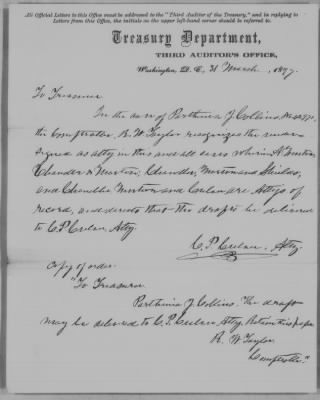 All Official Letters to this Office must be addressed to the "Third Auditor of the Treasury," and in replying to
Letters from this Office, the initials on the upper left-hand corner should be referred to.
Treasury Department,
THIRD AUDITOR'S OFFICE,
Washington, D. C., 31 March, 1877.
To Treasurer
In the case of Parthenia J. Collins,
the Comptroller, R. W. Taylor recognizes the under-
signed as atty in this and all cases wherein
Chandler & Newton, Chandler, Newton and Shields,
and Chandler Newton and are Attys of
record, and directs that the draft be delivered
to C. P. Culver Atty.
C. P. Culver, Atty.
Copy of order.
"To Treasurer
Parthenia J. Collins. The draft
may be delivered to C. P. Culver Atty.
R. W. Taylor
Comptroller."